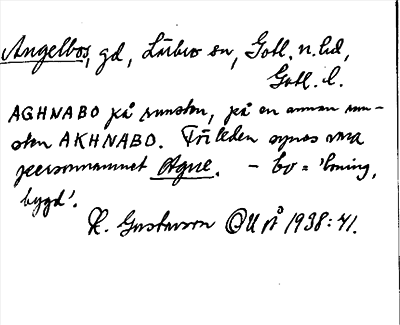 Angelbos, gd, Lärbro sn, Gotl. n. hd,
Gotl. l.
AGHNABO på runsten, på en annan run-
sten AKHNABO. Förleden synes vara
personnamnet Agne. – bo = 'boning,
bygd'.
H. Gustavson OUÅ 1938:41.